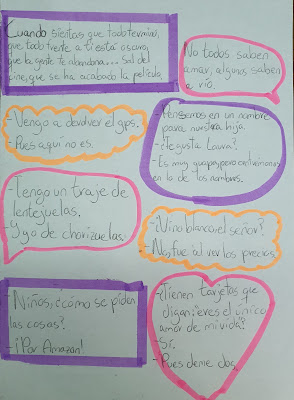 Cuando sientas que todo terminó,
que todo frente a ti está oscuro,
que la gente te abandona... Sal del
cine, que se ha acabado la película.
No todos saben
amar, algunos saben
a río.
-Vengo a devolver el gps.
-Pues aquí no es.
-Pensemos en un nombre
para nuestra hija.
-¿Te gusta Laura?
-Es muy guapa, pero centrémonos
en lo de los nombres.
-Tengo un traje de
lentejuelas.
Y yo de chorizuelas.
-¿Vino blanco el señor?
-No, fue al ver los precios.
-Niños, ¿cómo se piden
las cosas?
-¡Por Amazon!
-¿Tienen tarjetas que
digan: "eres el único
amor de mi vida"?
-Sí.
-Pues deme dos.